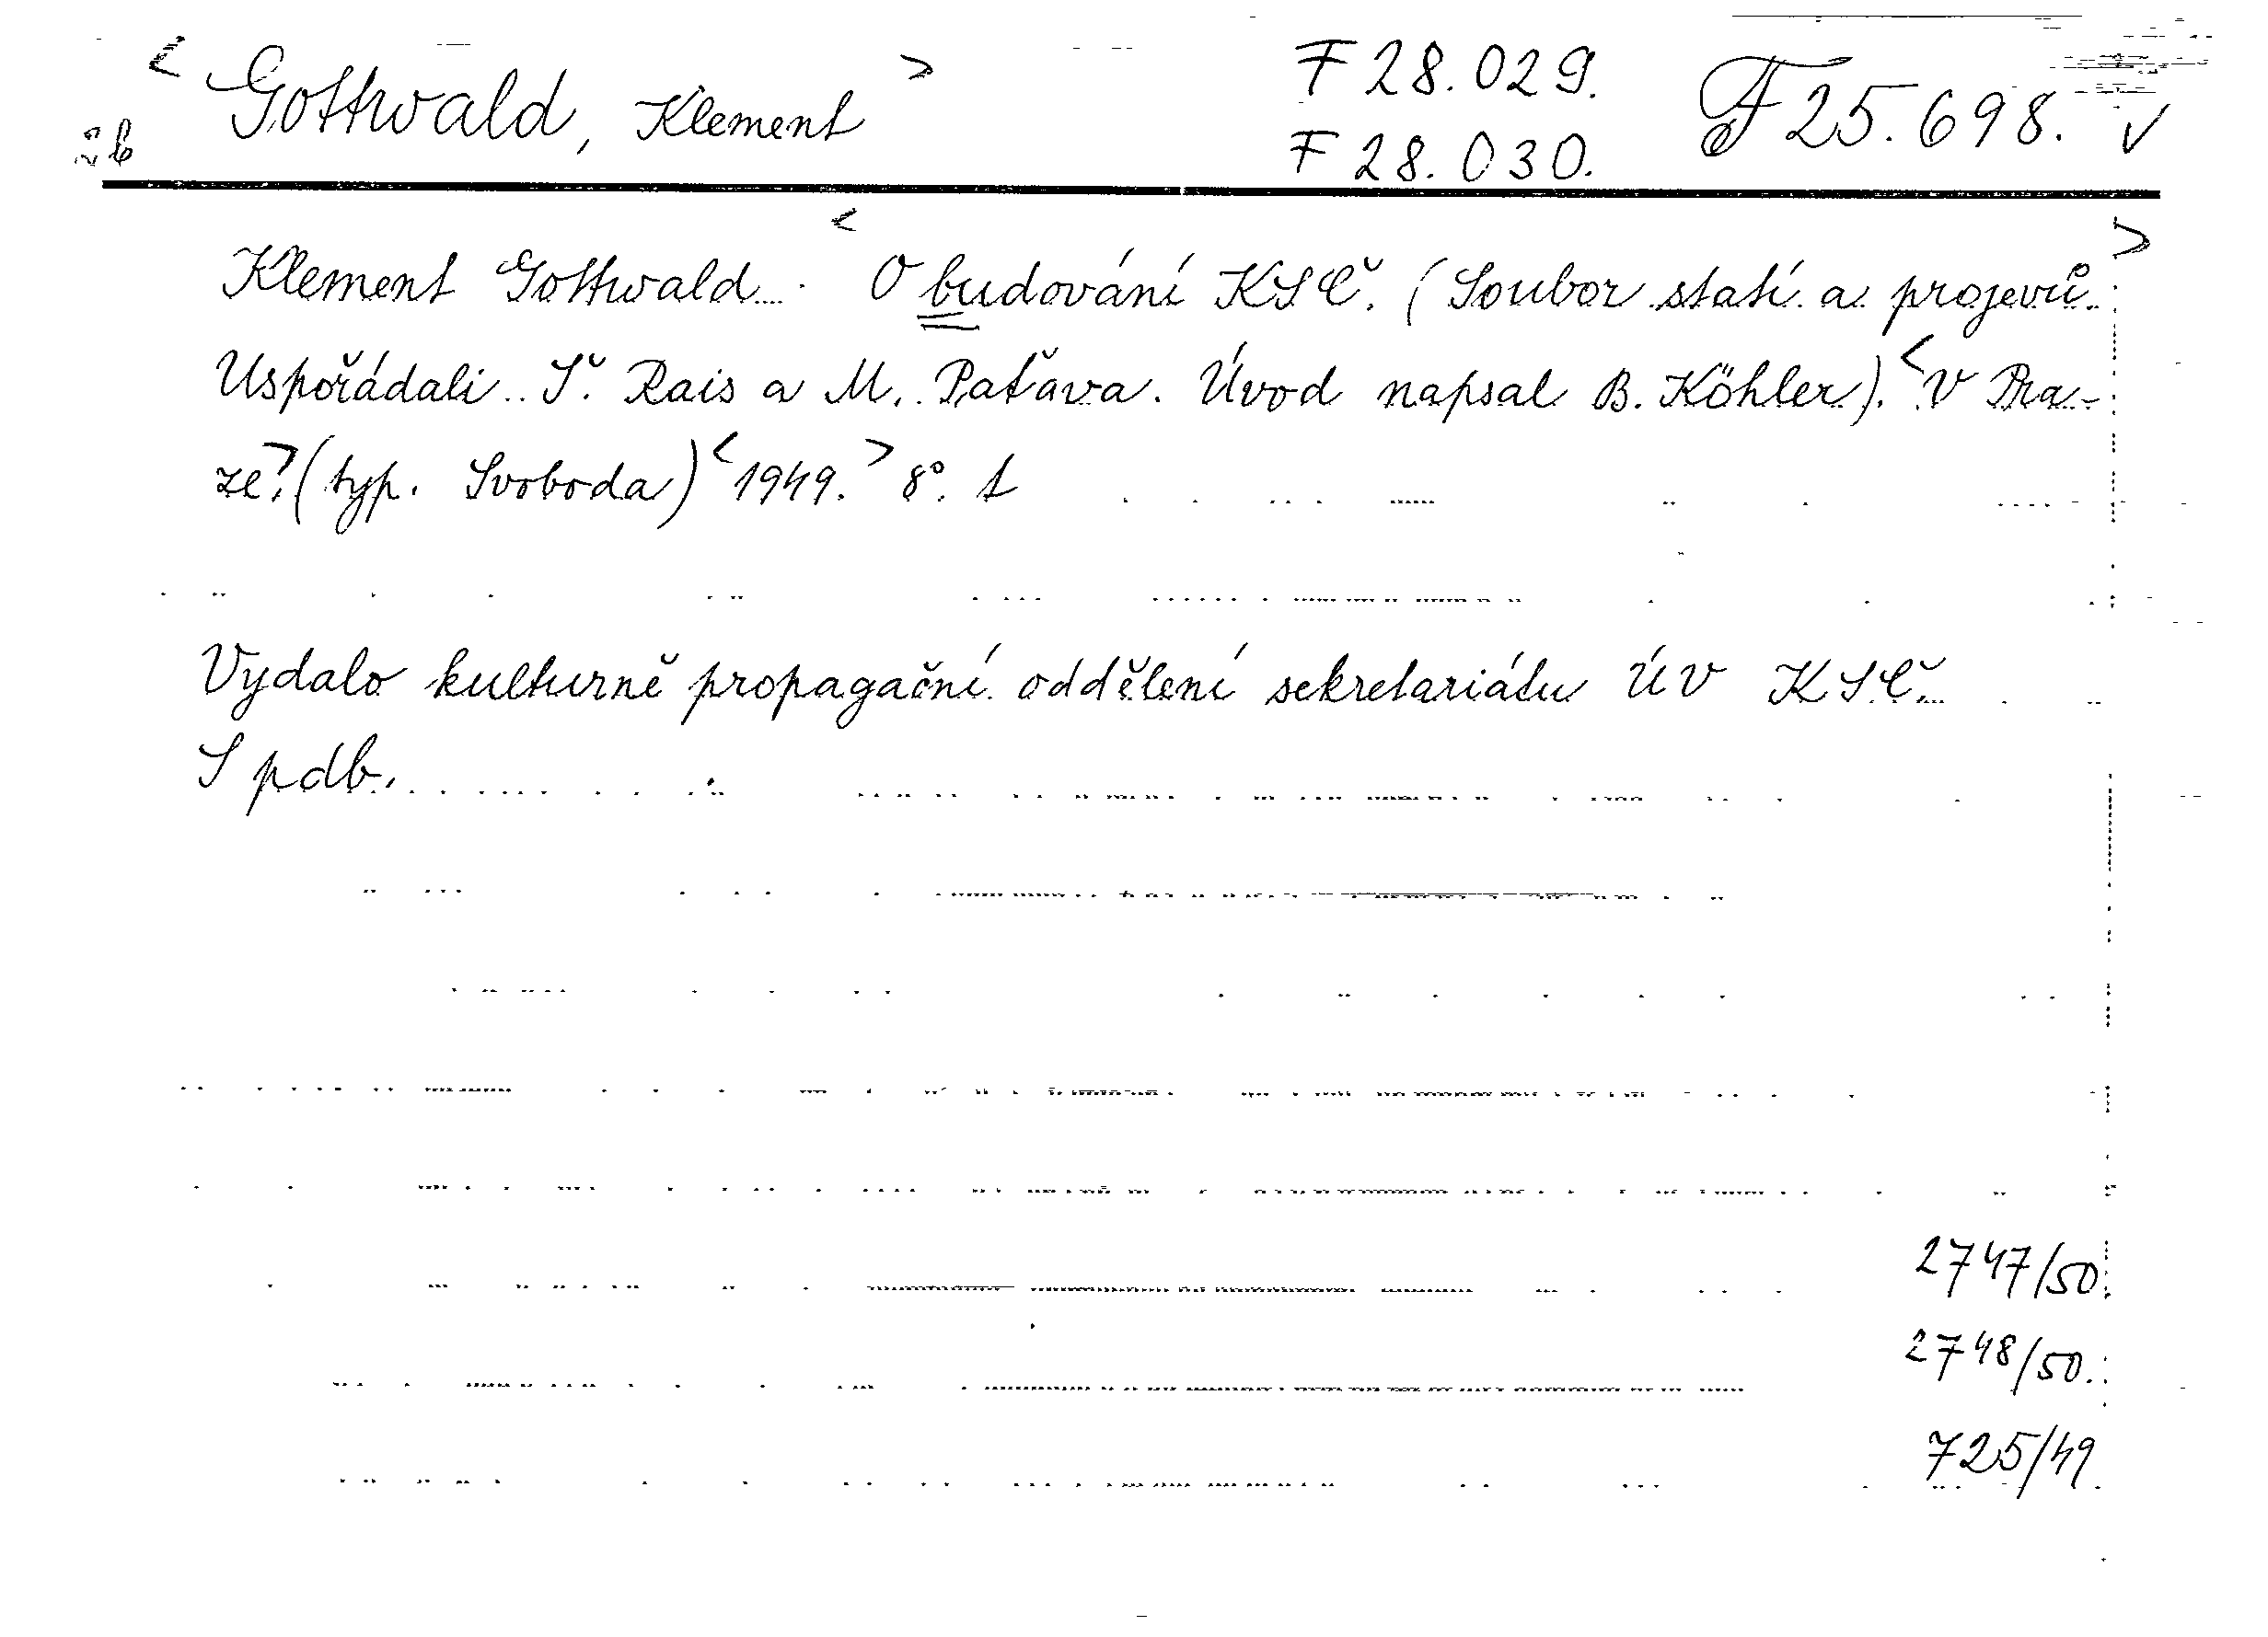 < Gottwald, Klement > F 28.029. F 25.698. ✓
F 28.030.
Klement Gottwald. < O budování KSČ. (Soubor statí a projevů. >
Uspořádali Š. Rais a M. Paťava. Úvod napsal B. Köhler). < V Pra-
ze. > (typ. Svoboda) < 1949. > 8°.
Vydalo kulturně propagační oddělení sekretariátu ÚV KSČ.
S pdb.
2747/50.
2748/50.
725/49